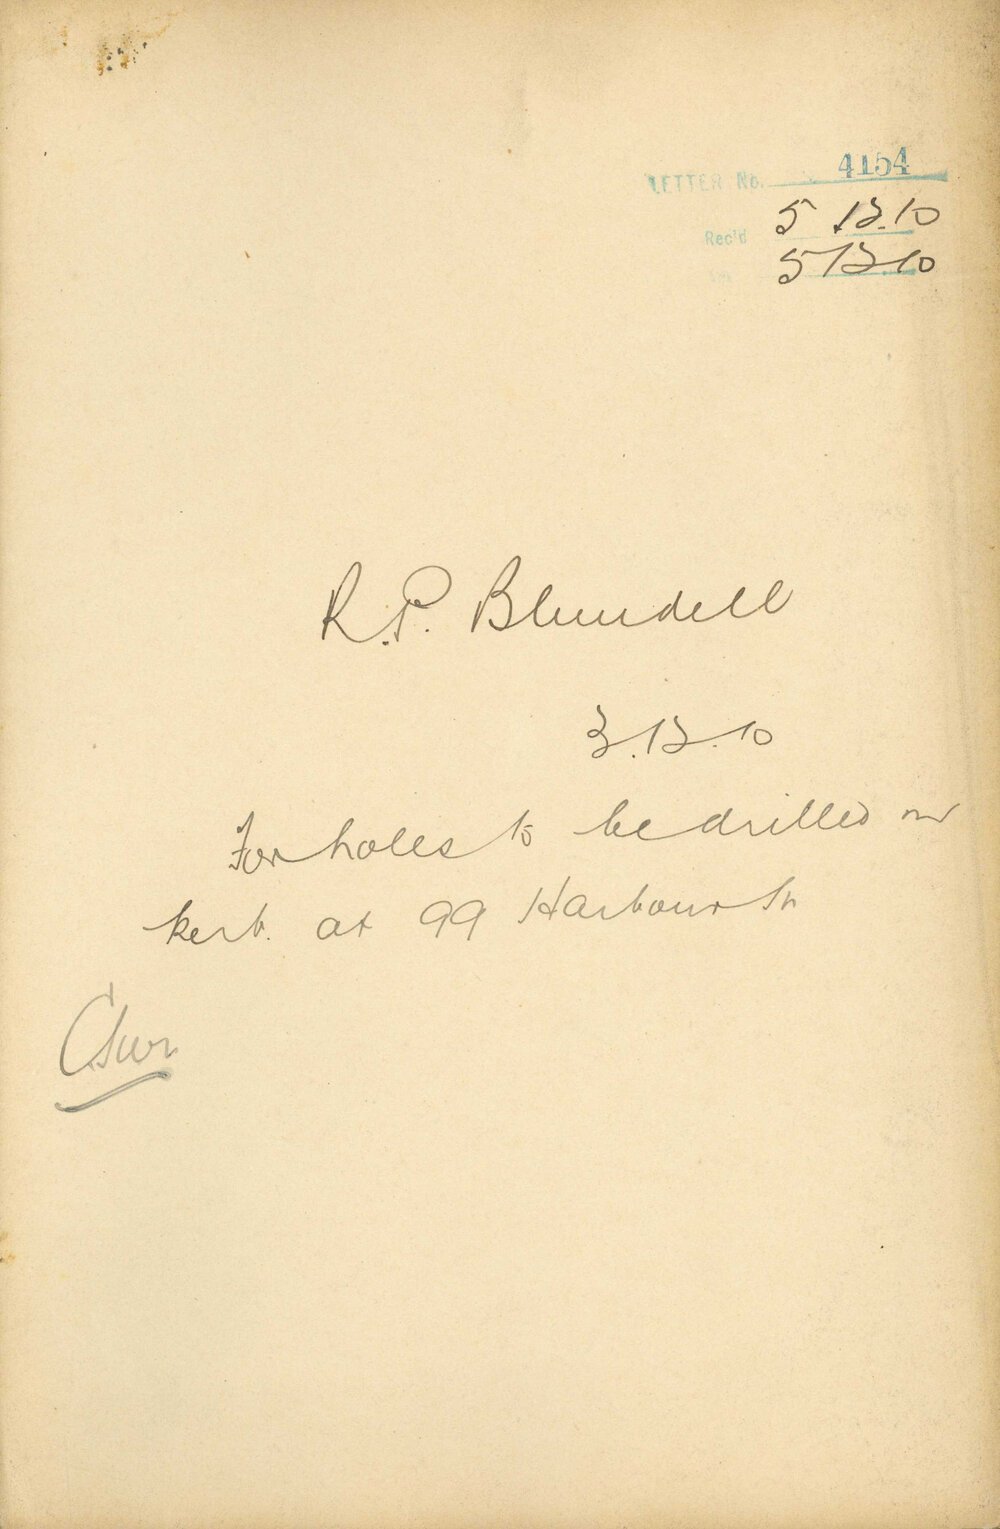 LETTER No. 4154
Rec'd 5 12.10
5 12.10
R.P. Blundell
3.12.10
For holes to be drilled in
kerb. at 99 Harbour St